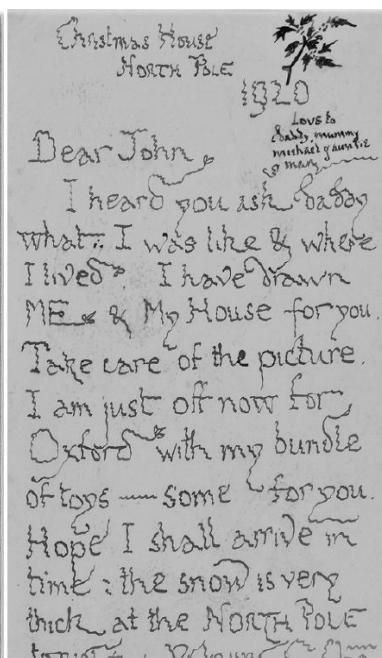 Christmas House
NORTH POLE
1920
Love to
daddy, mummy
michael & auntie
mary
Dear John
I heard you ask daddy
what I was like & where
I lived. I have drawn
ME & My House for you.
Take care of the picture.
I am just off now for
Oxford with my bundle
of toys — some for you.
Hope I shall arrive in
time : the snow is very
thick at the NORTH POLE